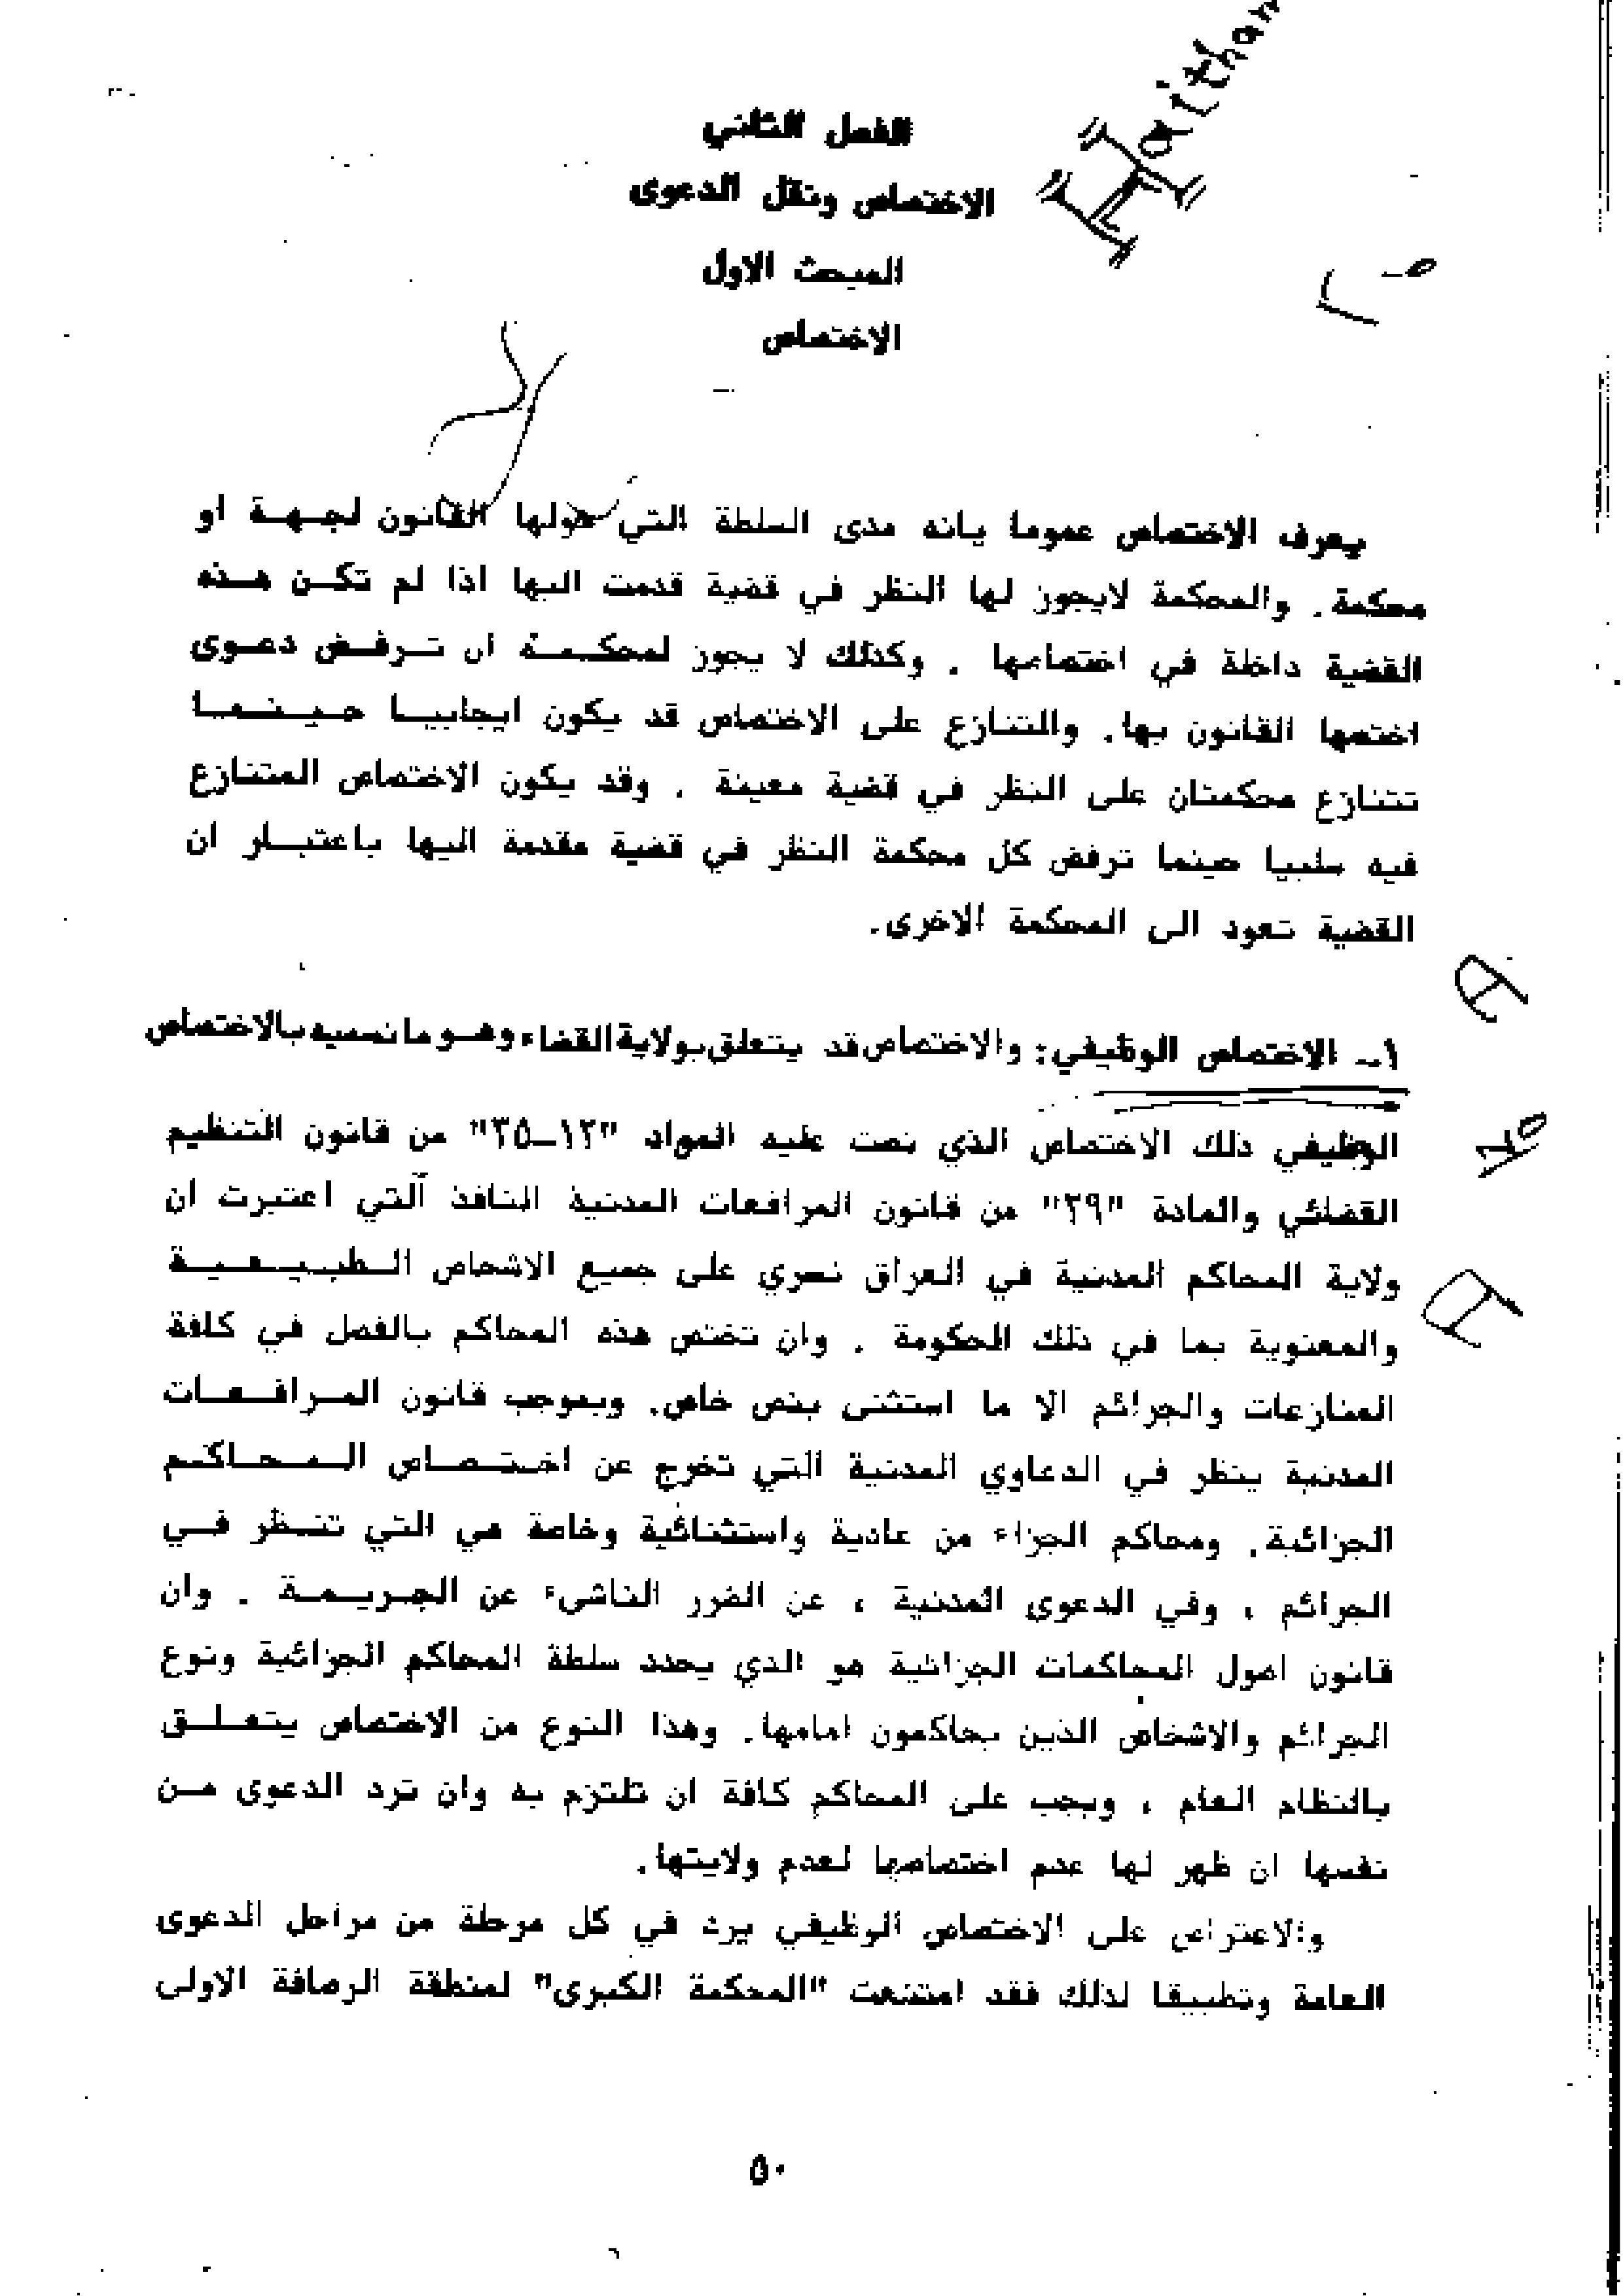 الفصل الثاني
الاختصاص ونقل الدعوى
المبحث الاول
الاختصاص
Haitham
يعرف الاختصاص عموما بانه مدى السلطة التي خولها القانون لجهة او
محكمة. والمحكمة لايجوز لها النظر في قضية قدمت اليها اذا لم تكن هذه
القضية داخلة في اختصاصها . وكذلك لا يجوز لمحكمة ان ترفض دعوى
اختصها القانون بها. والتنازع على الاختصاص قد يكون ايجابيا حينما
تتنازع محكمتان على النظر في قضية معينة . وقد يكون الاختصاص المتنازع
فيه سلبيا حينما ترفض كل محكمة النظر في قضية مقدمة اليها باعتبار ان
القضية تعود الى المحكمة الاخرى.
١- الاختصاص الوظيفي: والاختصاص قد يتعلق بولاية القضاء وهو ما نسميه بالاختصاص
الوظيفي ذلك الاختصاص الذي نصت عليه المواد "١٢-٣٥" من قانون التنظيم
القضائي والمادة "٢٩" من قانون المرافعات المدنية النافذ التي اعتبرت ان
ولاية المحاكم المدنية في العراق تسري على جميع الاشخاص الطبيعية
والمعنوية بما في ذلك الحكومة . وان تختص هذه المحاكم بالفصل في كافة
المنازعات والجرائم الا ما استثنى بنص خاص. وبموجب قانون المرافعات
المدنية ينظر في الدعاوي المدنية التي تخرج عن اختصاص المحاكم
الجزائية. ومحاكم الجزاء من عادية واستثنائية وخاصة هي التي تنظر في
الجرائم ، وفي الدعوى المدنية ، عن الضرر الناشىء عن الجريمة . وان
قانون اصول المحاكمات الجزائية هو الذي يحدد سلطة المحاكم الجزائية ونوع
الجرائم والاشخاص الذين يحاكمون امامها. وهذا النوع من الاختصاص يتعلق
بالنظام العام ، ويجب على المحاكم كافة ان تلتزم به وان ترد الدعوى من
نفسها ان ظهر لها عدم اختصاصها لعدم ولايتها.
والاعتراض على الاختصاص الوظيفي يرد في كل مرحلة من مراحل الدعوى
العامة وتطبيقا لذلك فقد امتنعت "المحكمة الكبرى" لمنطقة الرصافة الاولى
٥٠